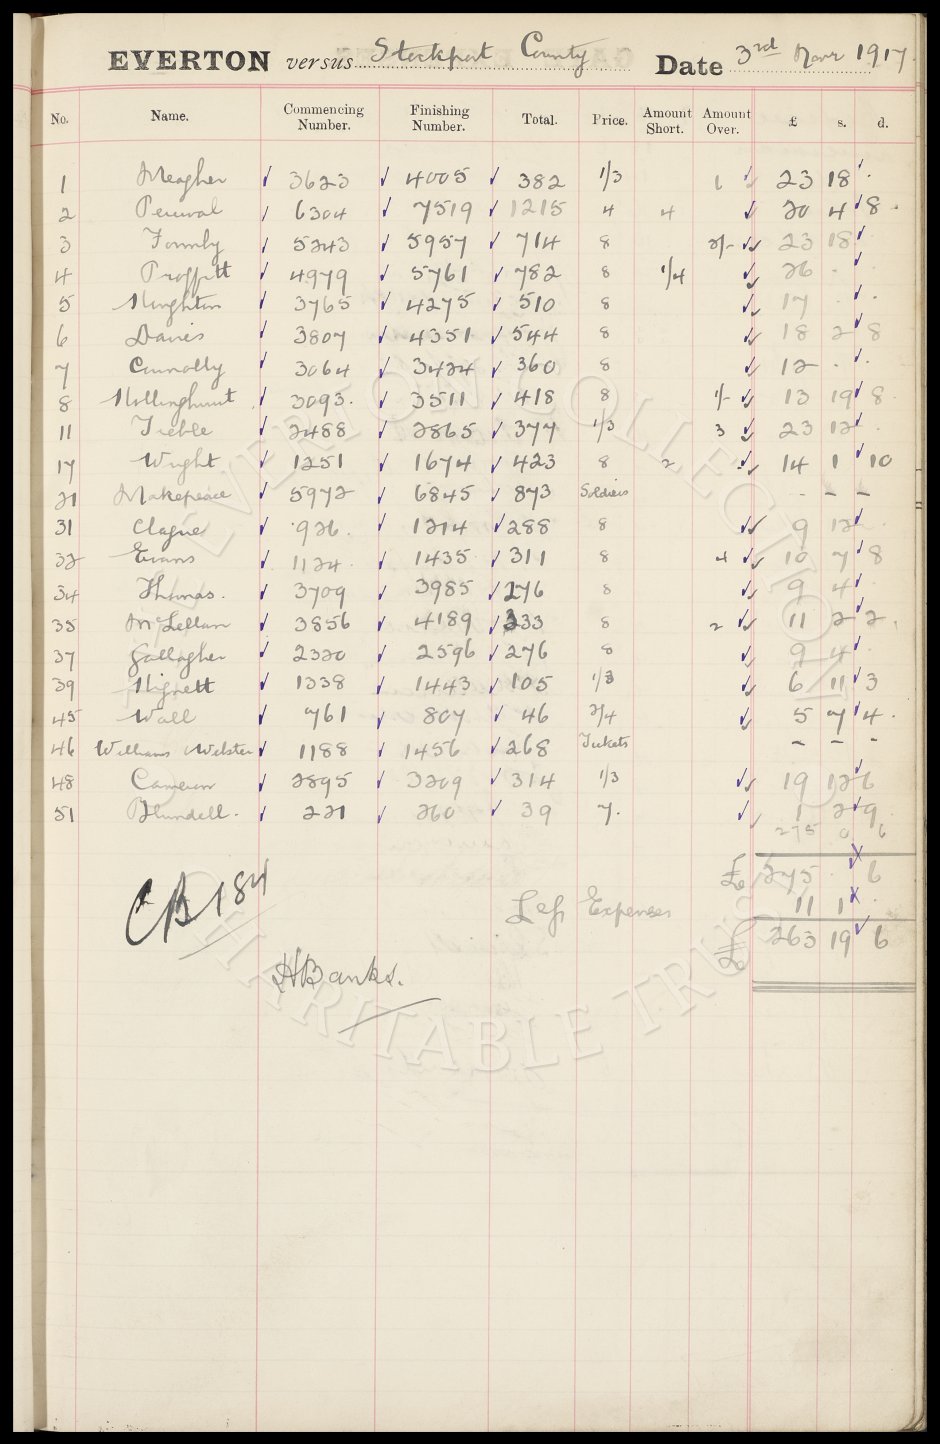 EVERTON versus Stockport County Date 3rd Novr 1917.
No. Name. Commencing Number. Finishing Number. Total. Price. Amount Short. Amount Over. £ s. d.
1 Meagher 3623 4005 382 1/3 6 23 18 .
2 Percival 6304 7519 1215 4 4 20 4 8
3 Formby 5243 5957 714 8 2/- 23 18 .
4 Proffitt 4979 5761 782 8 1/4 26 . .
5 Houghton 3765 4275 510 8 17 . .
6 Davies 3807 4351 544 8 18 2 8
7 Connolly 3064 3424 360 8 12 . .
8 Hollinghurst 3093 3511 418 8 1/- 13 19 8
11 Treble 2488 2865 377 1/3 3 23 12 .
17 Wright 1251 1674 423 8 2 14 1 10
21 Makepeace 5972 6845 873 Soldiers - - -
31 Clague 926 1214 288 8 9 12 .
32 Evans 1124 1435 311 8 4 10 7 8
34 Thomas. 3709 3985 276 8 9 4 .
35 McLellan 3856 4189 333 8 2 11 2 2
37 Gallagher 2320 2596 276 8 9 4 .
39 Hignett 1338 1443 105 1/3 6 11 3
45 Wall 761 807 46 2/4 5 7 4
46 Williams Webster 1188 1456 268 Tickets - - -
48 Cameron 2895 3209 314 1/3 19 12 6
51 Blundell. 221 260 39 7. 1 2 9
275 0 6
£ 275 . 6
CB 184 Less Expenses 11 1 .
£ 263 19 6
H Banks.
EVERTON COLLECTION
CHARITABLE TRUST